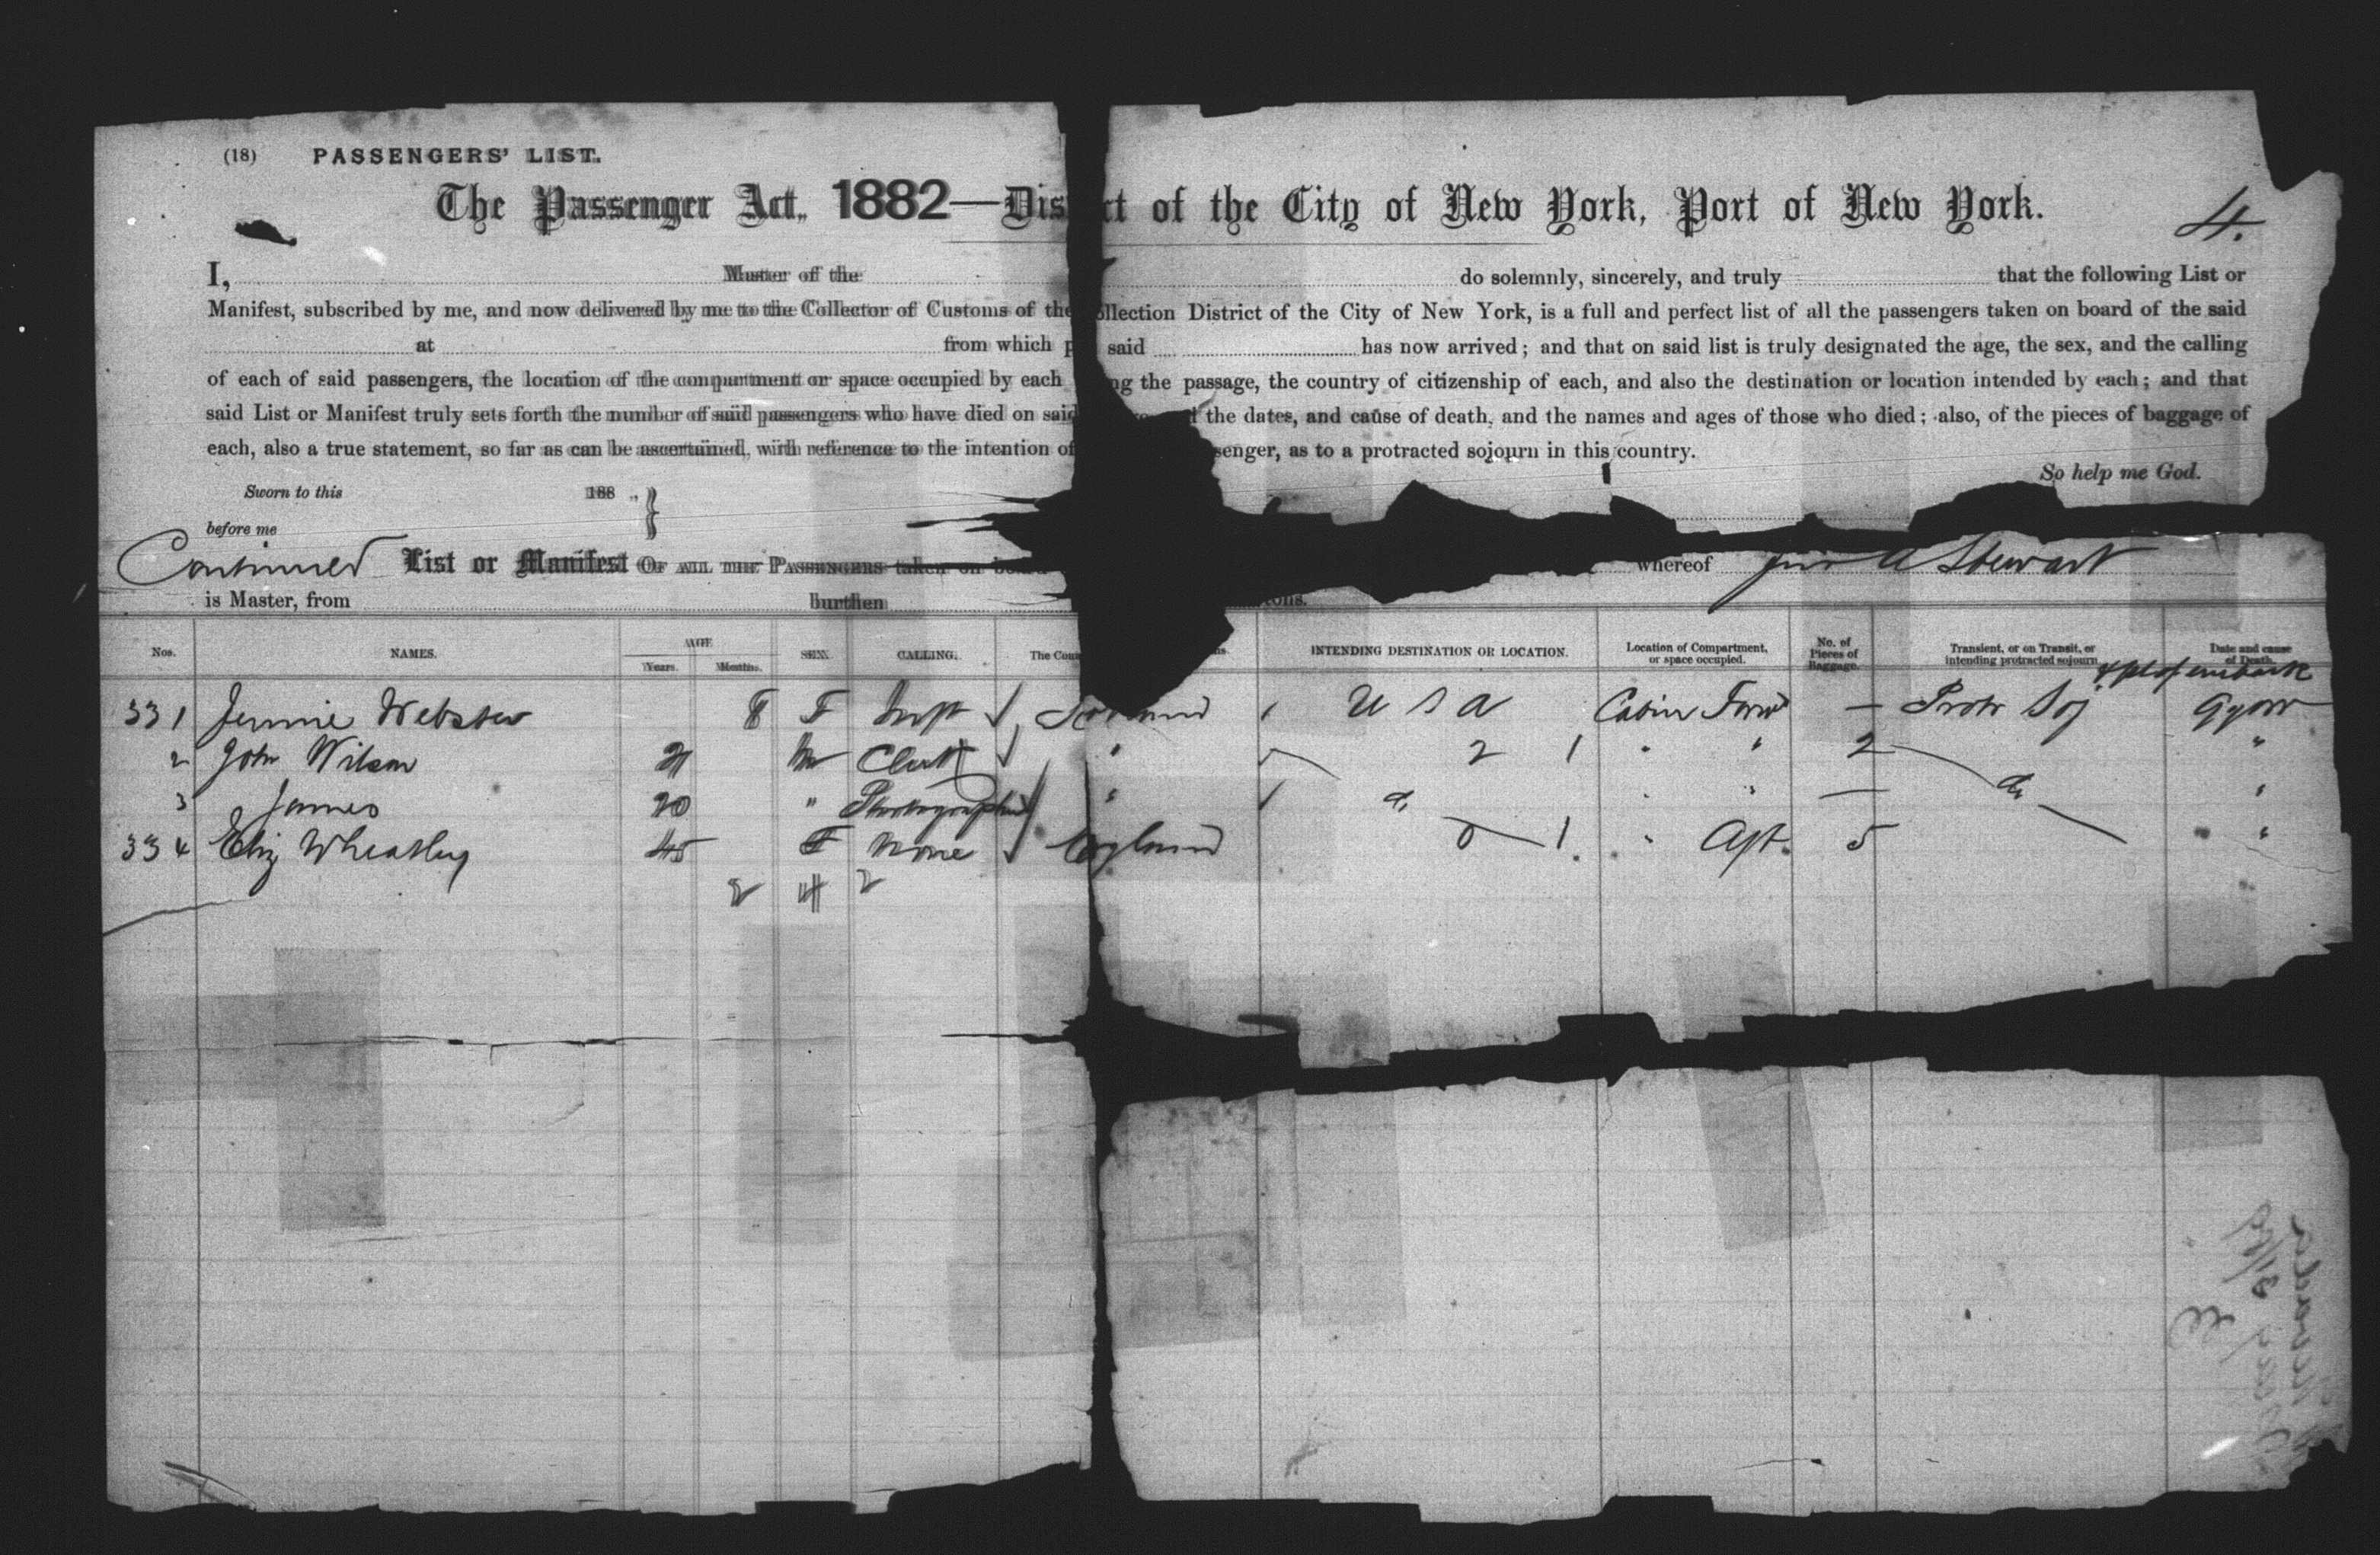 (18) PASSENGERS' LIST.
The Passenger Act, 1882—Dis ct of the City of New York, Port of New York.
4.
I, Master of the do solemnly, sincerely, and truly that the following List or
Manifest, subscribed by me, and now delivered by me to the Collector of Customs of the ollection District of the City of New York, is a full and perfect list of all the passengers taken on board of the said
at from which p said has now arrived; and that on said list is truly designated the age, the sex, and the calling
of each of said passengers, the location of the compartment or space occupied by each ng the passage, the country of citizenship of each, and also the destination or location intended by each; and that
said List or Manifest truly sets forth the number of said passengers who have died on said the dates, and cause of death, and the names and ages of those who died; also, of the pieces of baggage of
each, also a true statement, so far as can be ascertained, with reference to the intention of senger, as to a protracted sojourn in this country.
So help me God.
Sworn to this 188
before me
Continued List or Manifest OF ALL THE PASSENGERS taken on whereof A Stewart
is Master, from burthen tons.
Nos. NAMES. AGE Years. Months. SEX. CALLING. The Coun INTENDING DESTINATION OR LOCATION. Location of Compartment, or space occupied. No. of Pieces of Baggage. Transient, or on Transit, or intending protracted sojourn Date and cause of Death.
& pl of embark
331 Jennie Webster 8 F Inft Scotland U S A Cabin Forwd — Protr Soj Ggow
2 John Wilson 21 M Clerk " 2 1 " " 2 "
3 James 20 " Photographer " do " " — do "
334 Eliz Wheatley 45 F None England 0 1 " Aft. 5 "
2 4 2